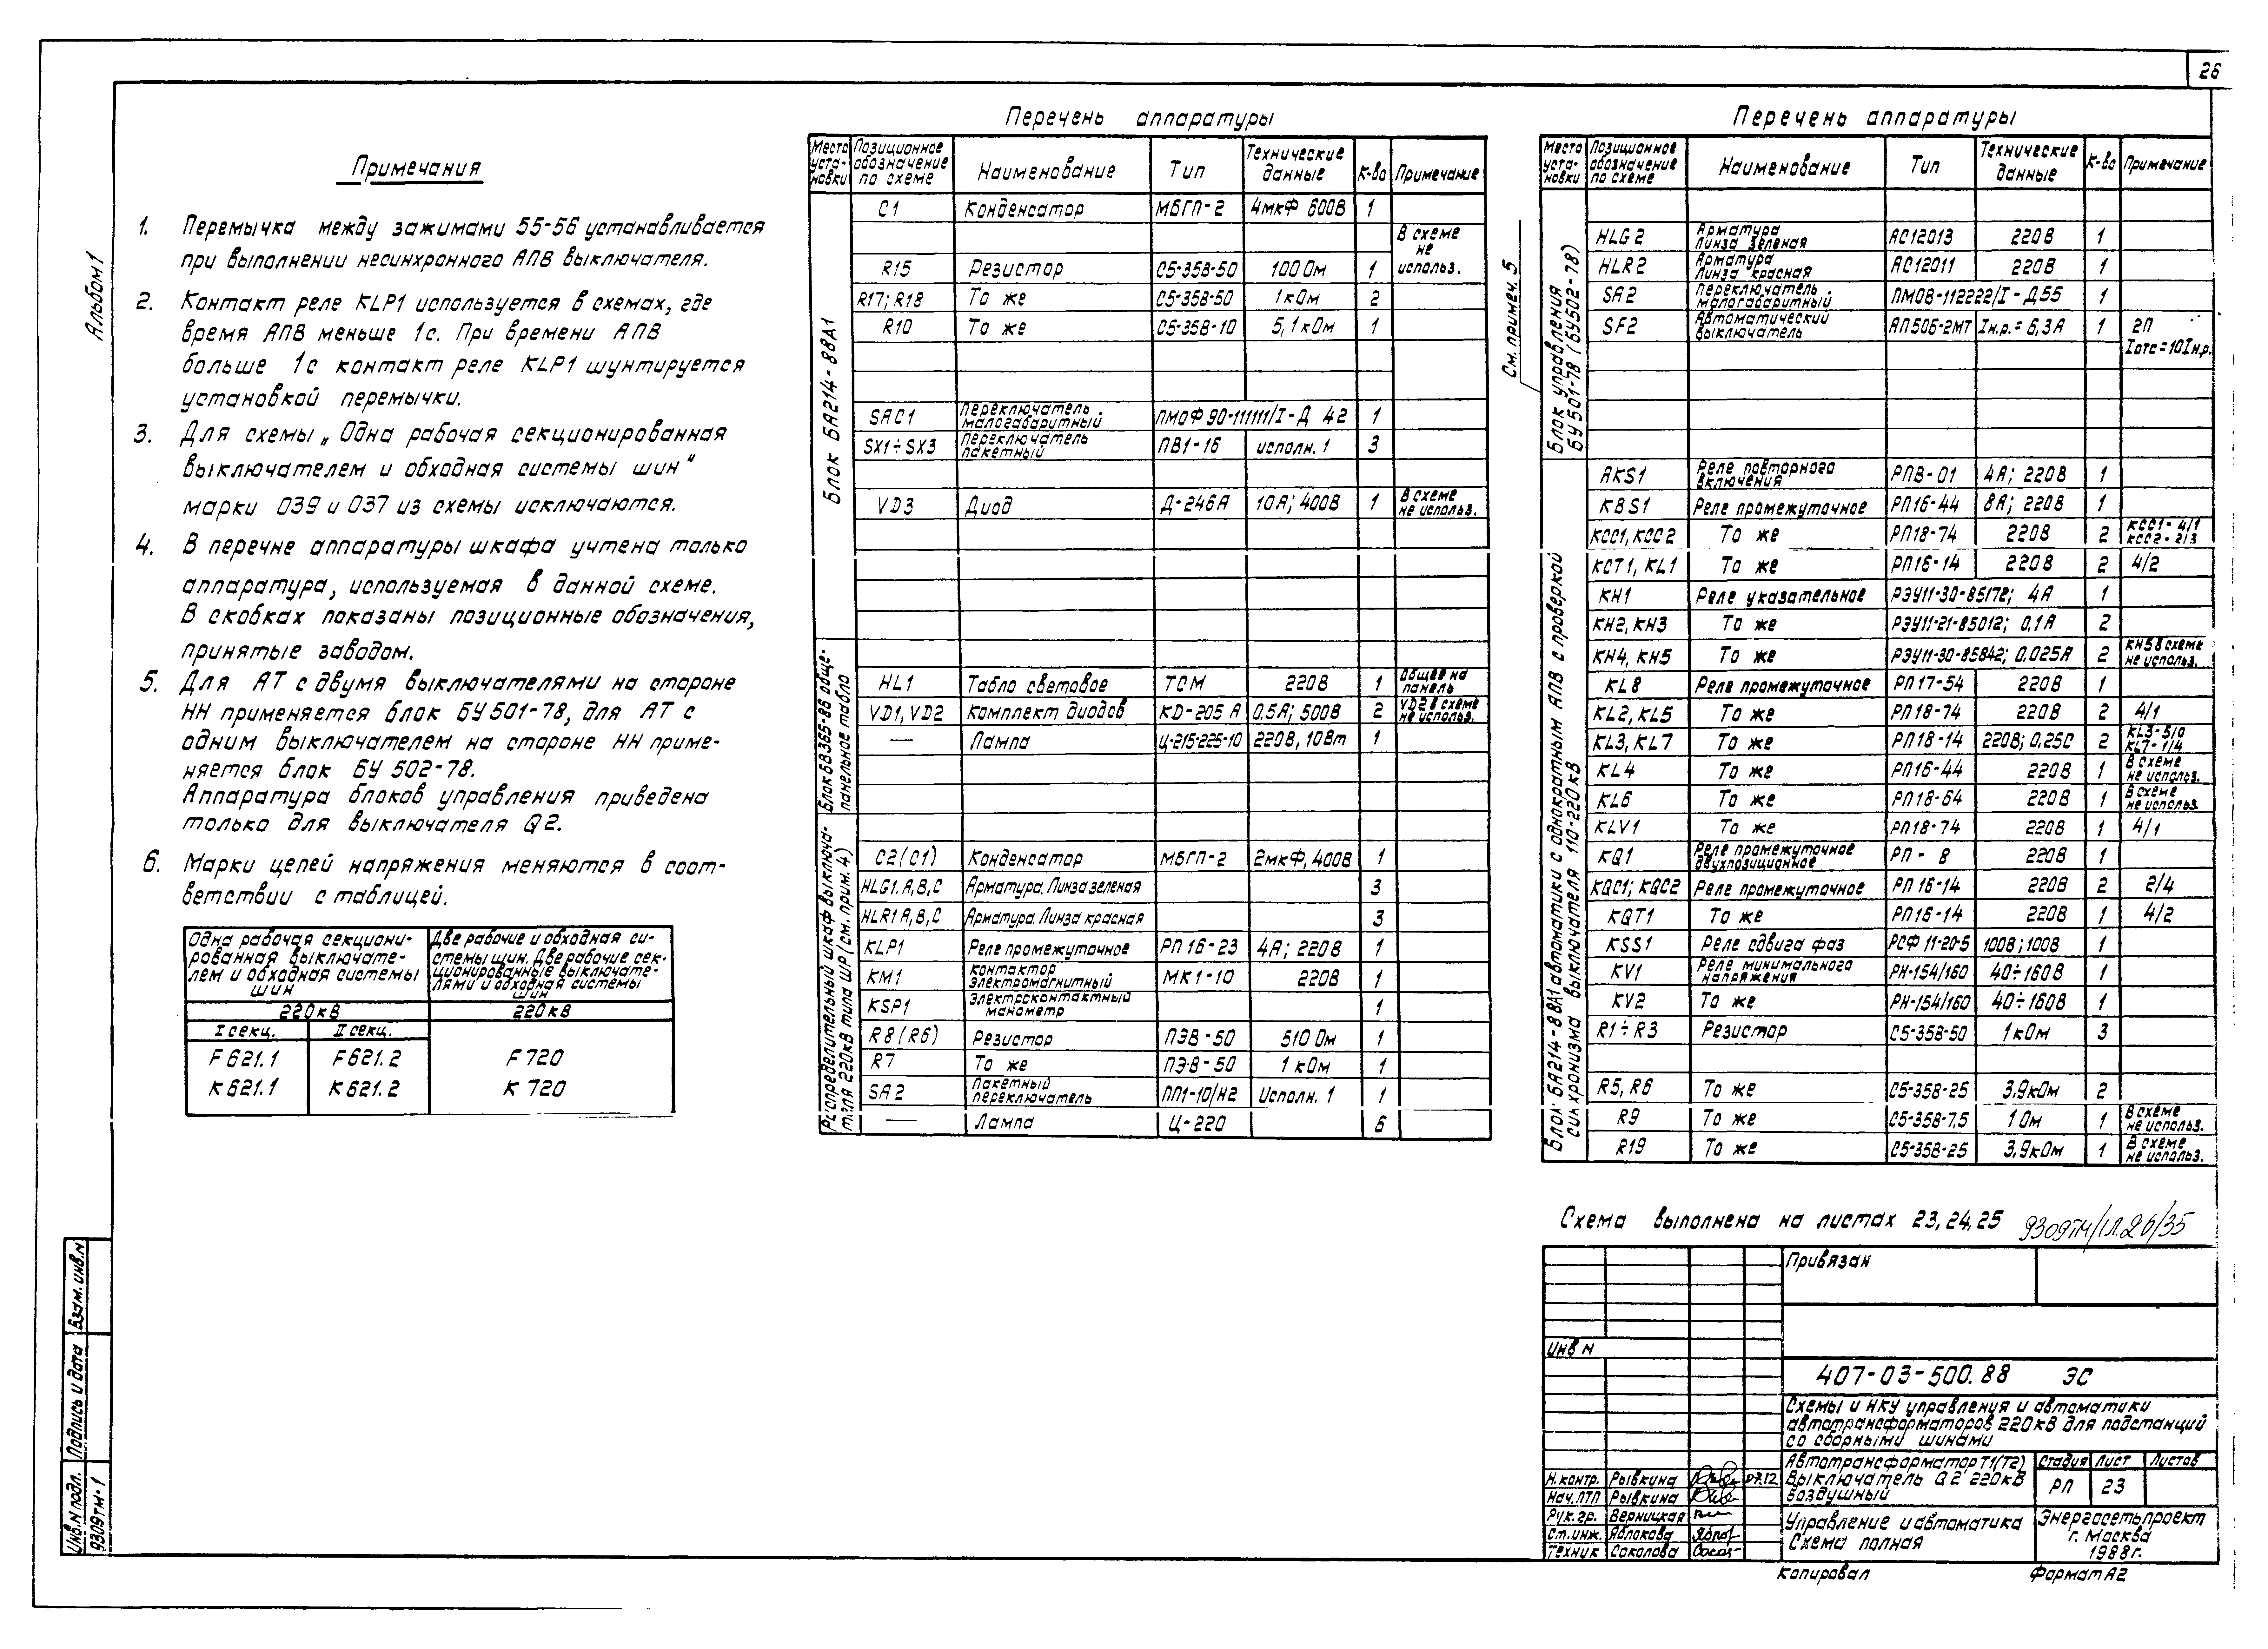 26
Альбом 1
Примечания
1. Перемычка между зажимами 55-56 устанавливается
при выполнении несинхронного АПВ выключателя.
2. Контакт реле KLP1 используется в схемах, где
время АПВ меньше 1с. При времени АПВ
больше 1с контакт реле KLP1 шунтируется
установкой перемычки.
3. Для схемы „Одна рабочая секционированная
выключателем и обходная системы шин"
марки 039 и 037 из схемы исключаются.
4. В перечне аппаратуры шкафа учтена только
аппаратура, используемая в данной схеме.
В скобках показаны позиционные обозначения,
принятые заводом.
5. Для АТ с двумя выключателями на стороне
НН применяется блок БУ501-78, для АТ с
одним выключателем на стороне НН приме-
няется блок БУ 502-78.
Аппаратура блоков управления приведена
только для выключателя Q2.
6. Марки цепей напряжения меняются в соот-
ветствии с таблицей.
Одна рабочая секциони-
рованная выключате-
лем и обходная системы
шин
Две рабочие и обходная си-
стемы шин. Две рабочие сек-
ционированные выключате-
лями и обходная системы
шин
220кВ 220кВ
I секц. II секц.
F621.1 F621.2 F720
K621.1 K621.2 K720
Перечень аппаратуры
Место уста- новки Позиционное обозначение по схеме Наименование Тип Технические данные К-во Примечание
Блок БА214-88А1
C1 Конденсатор МБГП-2 4мкФ 600В 1
В схеме
не
использ.
R15 Резистор С5-35В-50 100 Ом 1
R17; R18 То же С5-35В-50 1кОм 2
R10 То же С5-35В-10 5,1кОм 1
SAC1 Переключатель малогабаритный ПМОФ90-111111/I-Д 42 1
SX1÷SX3 Переключатель пакетный ПВ1-16 исполн. 1 3
VD3 Диод Д-246А 10А; 400В 1 В схеме не использ.
Блок БВ365-86 обще-
панельное табло
HL1 Табло световое ТСМ 220В 1 Общее на панель
VD1, VD2 Комплект диодов КД-205А 0,5А; 500В 2 VD2 в схеме не использ.
— Лампа Ц-215-225-10 220В, 10Вт 1
Распределительный шкаф выключа-
теля 220кВ типа ШР (см. прим. 4)
C2 (C1) Конденсатор МБГП-2 2мкФ, 400В 1
HLG1. A, B, C Арматура. Линза зеленая 3
HLR1 A, B, C Арматура. Линза красная 3
KLP1 Реле промежуточное РП16-23 4А; 220В 1
KM1 Контактор электромагнитный МК1-10 220В 1
KSP1 Электроконтактный манометр 1
R8 (R6) Резистор ПЭВ-50 510 Ом 1
R7 То же ПЭВ-50 1 кОм 1
SA2 Пакетный переключатель ПП1-10/Н2 Исполн. 1 1
— Лампа Ц-220 6
Перечень аппаратуры
Место уста- новки Позиционное обозначение по схеме Наименование Тип Технические данные К-во Примечание
См. примеч. 5
Блок управления
БУ501-78 (БУ502-78)
HLG2 Арматура Линза зеленая АС12013 220В 1
HLR2 Арматура Линза красная АС12011 220В 1
SA2 Переключатель малогабаритный ПМОВ-112222/I-Д55 1
SF2 Автоматический выключатель АП50Б-2МТ Iн.р.=6,3А 1 2П
Iотс=10Iн.р.
Блок БА214-88А1 автоматики с однократным АПВ с проверкой
синхронизма выключателя 110-220кВ
AKS1 Реле повторного включения РПВ-01 4А; 220В 1
KBS1 Реле промежуточное РП16-44 8А; 220В 1
KCC1, KCC2 То же РП18-74 220В 2 KCC1-4/1 KCC2-2/3
KCT1, KL1 То же РП16-14 220В 2 4/2
KH1 Реле указательное РЭУ11-30-85172; 4А 1
KH2, KH3 То же РЭУ11-21-85012; 0,1А 2
KH4, KH5 То же РЭУ11-30-85842; 0,025А 2 KH5 в схеме не использ.
KL8 Реле промежуточное РП17-54 220В 1
KL2, KL5 То же РП18-74 220В 2 4/1
KL3, KL7 То же РП18-14 220В; 0,25С 2 KL3-5/0 KL7-1/4
KL4 То же РП16-44 220В 1 В схеме не использ.
KL6 То же РП18-64 220В 1 В схеме не использ.
KLV1 То же РП18-74 220В 1 4/1
KQ1 Реле промежуточное двухпозиционное РП-8 220В 1
KQC1; KQC2 Реле промежуточное РП16-14 220В 2 2/4
KQT1 То же РП16-14 220В 1 4/2
KSS1 Реле сдвига фаз РСФ 11-20-5 100В; 100В 1
KV1 Реле минимального напряжения РН-154/160 40÷160В 1
KV2 То же РН-154/160 40÷160В 1
R1÷R3 Резистор С5-35В-50 1кОм 3
R5, R6 То же С5-35В-25 3,9кОм 2
R9 То же С5-35В-7,5 1 Ом 1 В схеме не использ.
R19 То же С5-35В-25 3,9кОм 1 В схеме не использ.
Схема выполнена на листах 23, 24, 25
9309тм/1л.26/35
Привязан
Инв N
407-03-500.88 ЭС
Схемы и НКУ управления и автоматики
автотрансформаторов 220кВ для подстанций
со сборными шинами
Автотрансформатор Т1(Т2)
Выключатель Q2 220кВ
воздушный
Стадия Лист Листов
РП 23
Управление и автоматика
Схема полная
Энергосетьпроект
г. Москва
1988г.
Н.контр. Рывкина 07.12
Нач.ПТП Рывкина
Рук.гр. Верницкая
Ст.инж. Яблокова
Техник Соколова
Копировал Формат А2
Взам. инв. N
Подпись и дата
Инв. N подл.
9309тм-1